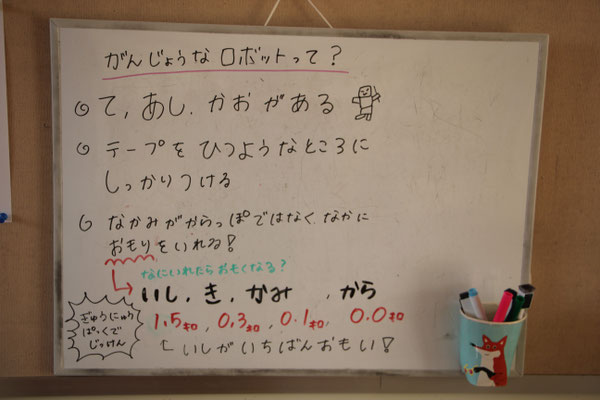 がんじょうなロボットって?
◎ て, あし. かおがある
◎ テープをひつようなところに
しっかりつける
◎ なかみがからっぽではなくなかに
おもりをいれる!
なにいれたらおもくなる?
いし. き. かみ , から
1.5キロ , 0.3キロ , 0.1キロ. 0.0キロ
いしがいちばんおもい!
ぎゅうにゅう
ぱっくで
じっけん